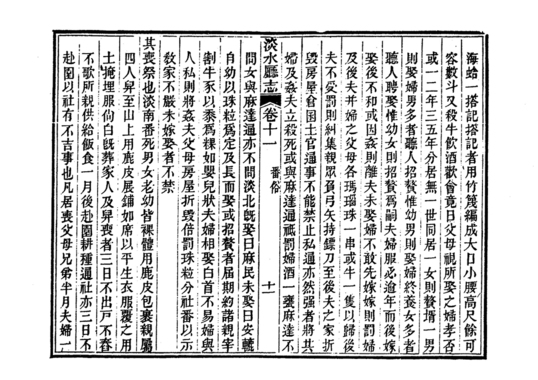 海蛤一搭記搭記者用竹篾編成大口小腰高尺餘可
容數斗又殺牛飲酒歡會竟日父母視所娶之婦孝否
或一二年三五年分居無一世同居一女則贅壻一男
則娶婦男多者聽人招贅惟幼男則娶婦終養女多者
聽人聘娶惟幼女則招贅爲嗣夫婦服必逾年而後嫁
娶後不和或因姦則離夫未娶婦不敢先嫁嫁則罰婦
及後夫并婦之父母各瑪瑙珠一串或牛一隻以歸後
夫不受罰則糾集親眾負弓矢持鏢刀至後夫之家折
毀房屋倉囷土官通事不能禁止私通亦然强者將其
婦及姦夫立殺死或與麻達通祗罰婦酒一甕麻達不
淡水廳志 卷十一 番俗 十一
問女與麻達通亦不問淡北旣娶曰麻民未娶曰安轆
自幼以珠粒爲定及長而娶或招贅者屆期約諸親宰
割牛豕以黍爲粿如嬰兒狀夫婦相娶白首不易婦與
人私則將姦夫父母房屋折毀倍罰珠粒分社番以示
敎家不嚴未嫁娶者不禁
其喪祭也淡南番死男女老幼皆裸體用鹿皮包裹親屬
四人舁至山上用鹿皮展鋪如席以平生衣服覆之用
土掩埋服倘白旣葬家人及舁喪者三日不出戶不舂
不歌所親供給飯食一月後赴園耕種通社亦三日不
赴園以社有不吉事也凡居喪父母兄弟半月夫婦一